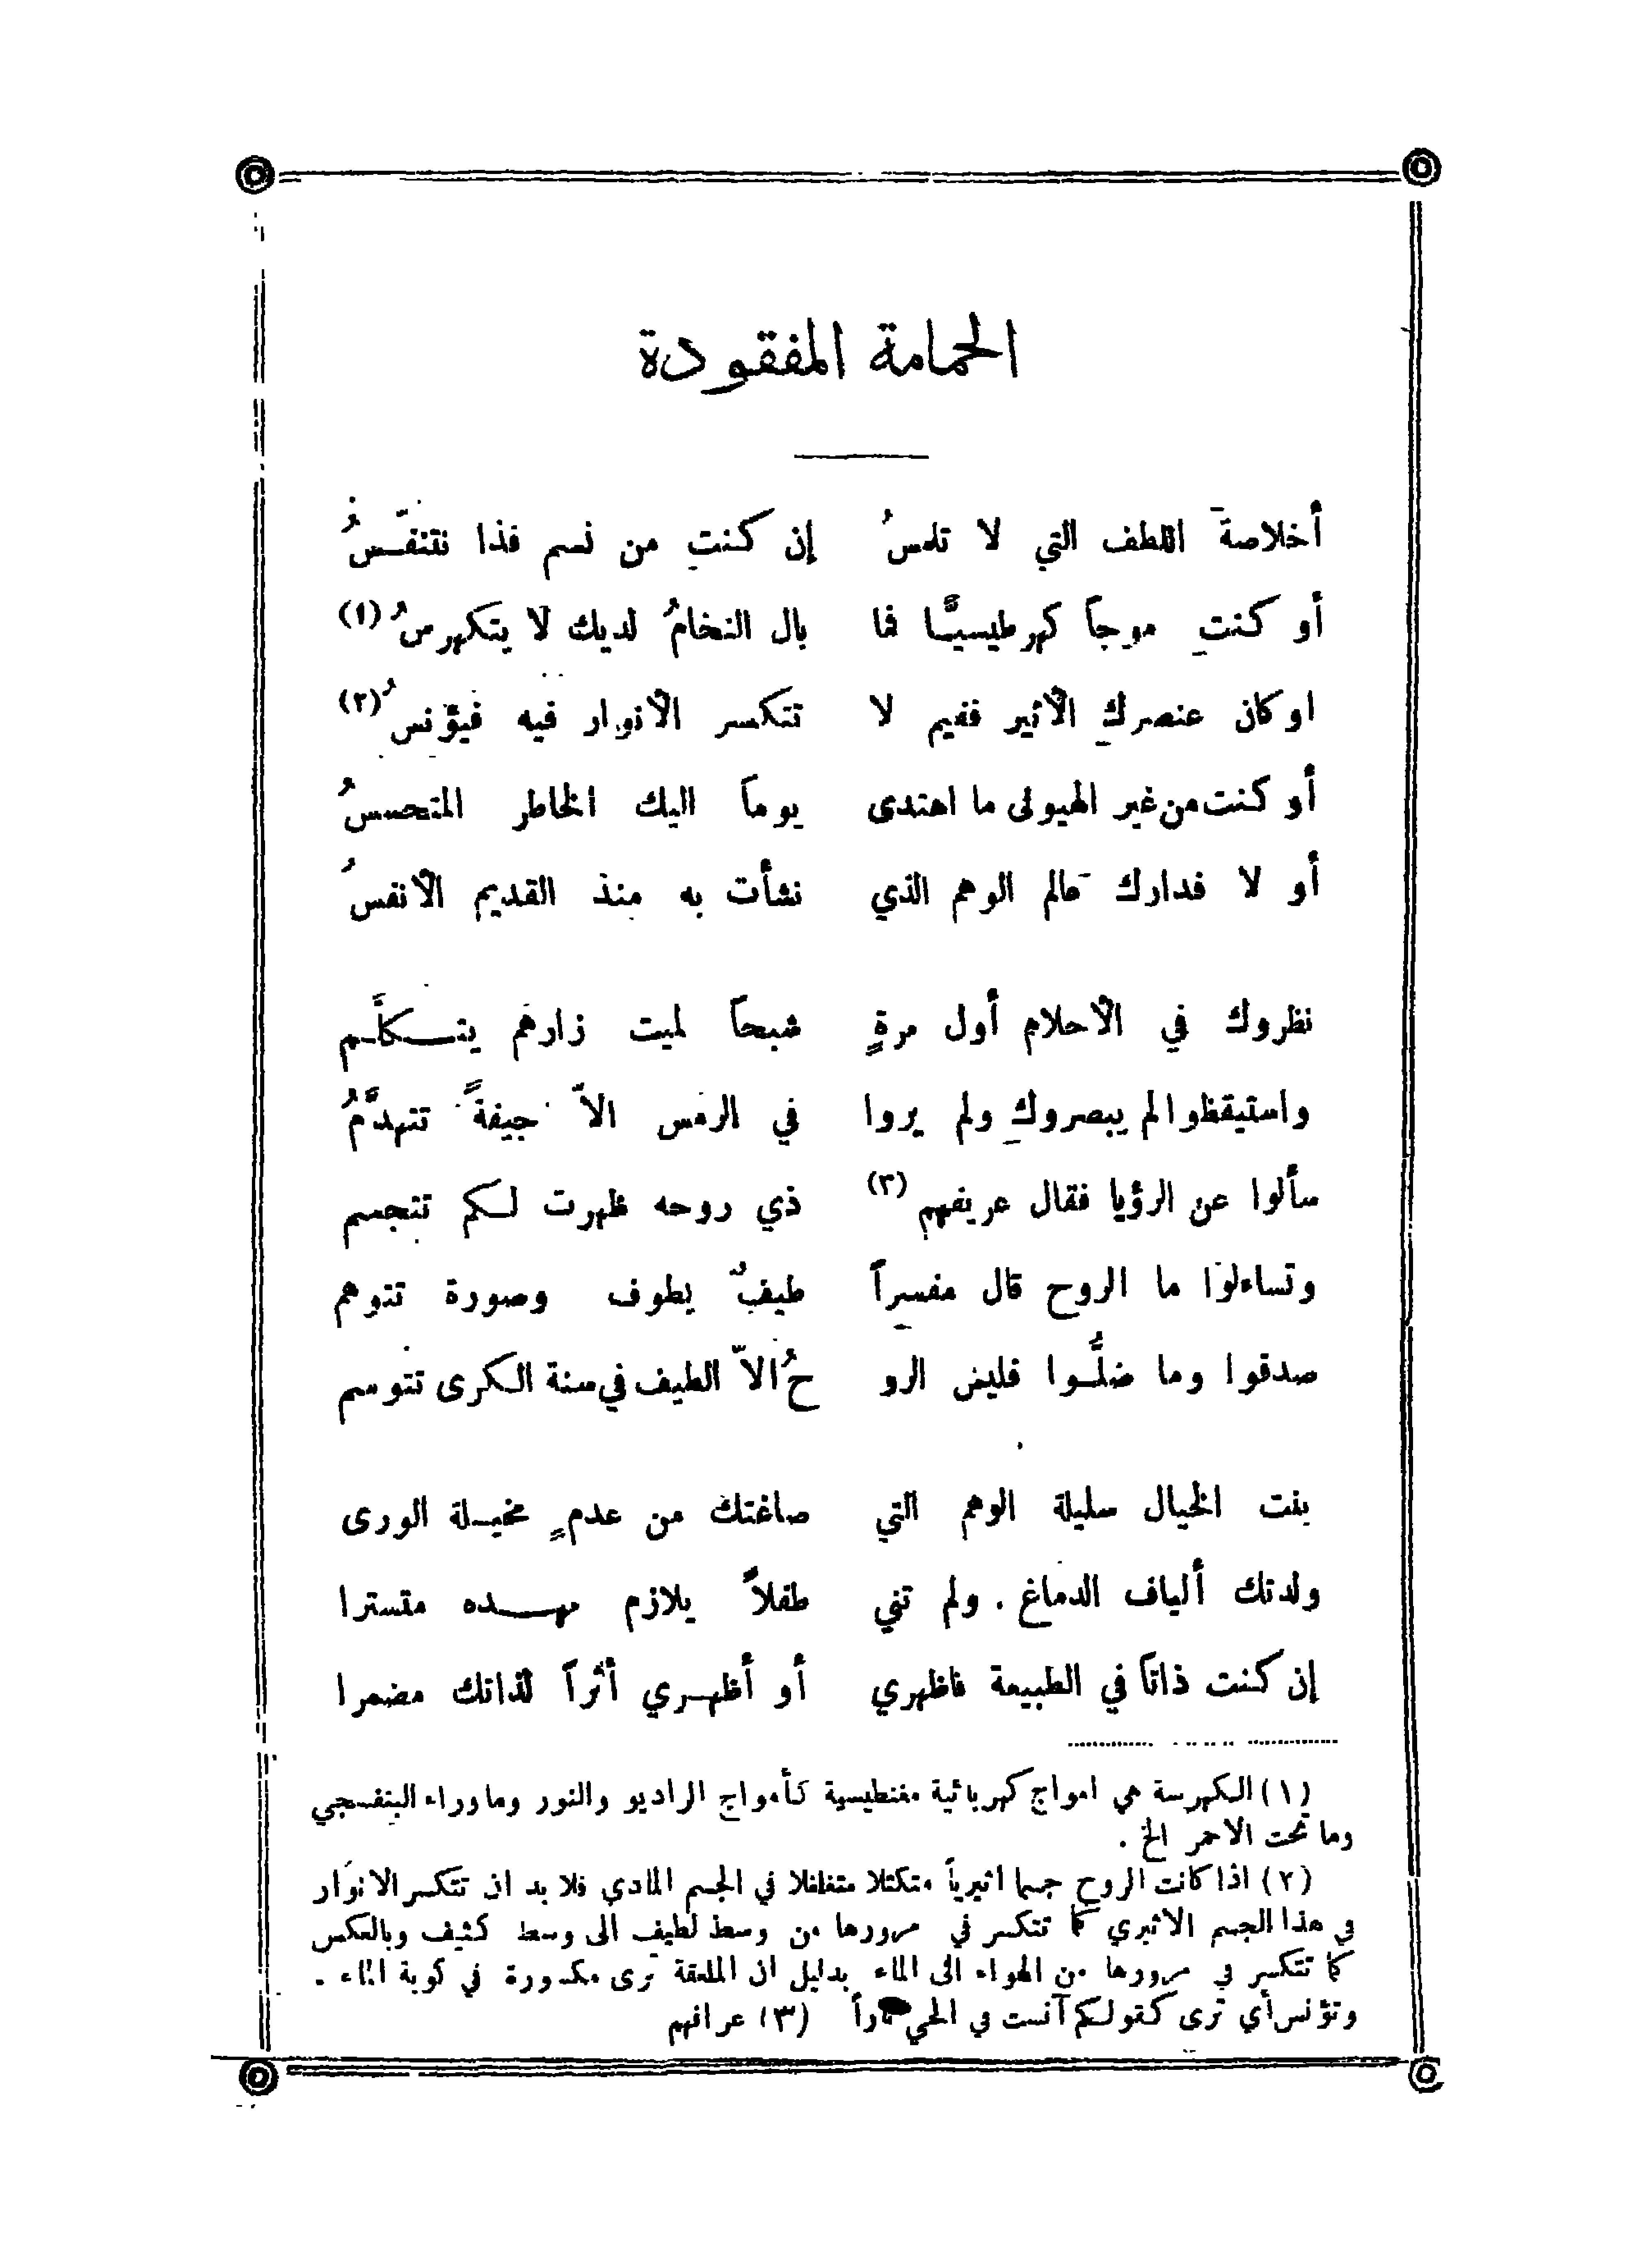 الحمامة المفقودة
أخلاصةَ اللطف التي لا تلمسُ إن كنتِ من نسم فذا نتنفّسُ
أو كنتِ موجاً كهرطيسيًّا فما بال النخامُ لديك لا يتكهرسُ (١)
او كان عنصركِ الأثير ففيم لا تتكسر الأنوار فيه فيؤنسُ (٢)
أو كنت من غير الهيولى ما اهتدى يوماً اليك الخاطر المتحسسُ
أو لا فدارك عالم الوهم الذي نشأت به منذ القديم الأنفسُ
نظروك في الأحلام أول مرةٍ شبحاً لميت زارهم يتكلَّم
واستيقظوا لم يبصروكِ ولم يروا في الرمس الاّ جيفةً تتهدَّمُ
سألوا عن الرؤيا فقال عريفهم (٣) ذي روحه ظهرت لكم تتجسم
وتساءلوا ما الروح قال مفسراً طيفٌ يطوف وصورة تتوهم
صدقوا وما ضلُّوا فليس الرو حُ الاّ الطيف في سنة الكرى تتوسم
بنت الخيال سليلة الوهم التي صاغتك من عدمٍ مخيلة الورى
ولدتك ألياف الدماغ . ولم تني طفلاً يلازم مهده متسترا
إن كنت ذاتاً في الطبيعة فاظهري أو أظهري أثراً لذاتك مضمرا
(١) الكهرسة هي امواج كهربائية مغنطيسية كأمواج الراديو والنور وما وراء البنفسجي
وما تحت الاحمر الخ .
(٢) اذا كانت الروح جسما اثيرياً متكتلا متغلغلا في الجسم المادي فلا بد ان تتكسر الانوار
في هذا الجسم الاثيري كما تتكسر في مرورها من وسط لطيف الى وسط كثيف وبالعكس
كما تتكسر في مرورها من الهواء الى الماء بدليل ان الملعقة ترى مكسورة في كوبة الماء .
وتؤنس أي ترى كقولكم آنست في الحي ناراً (٣) عرافهم